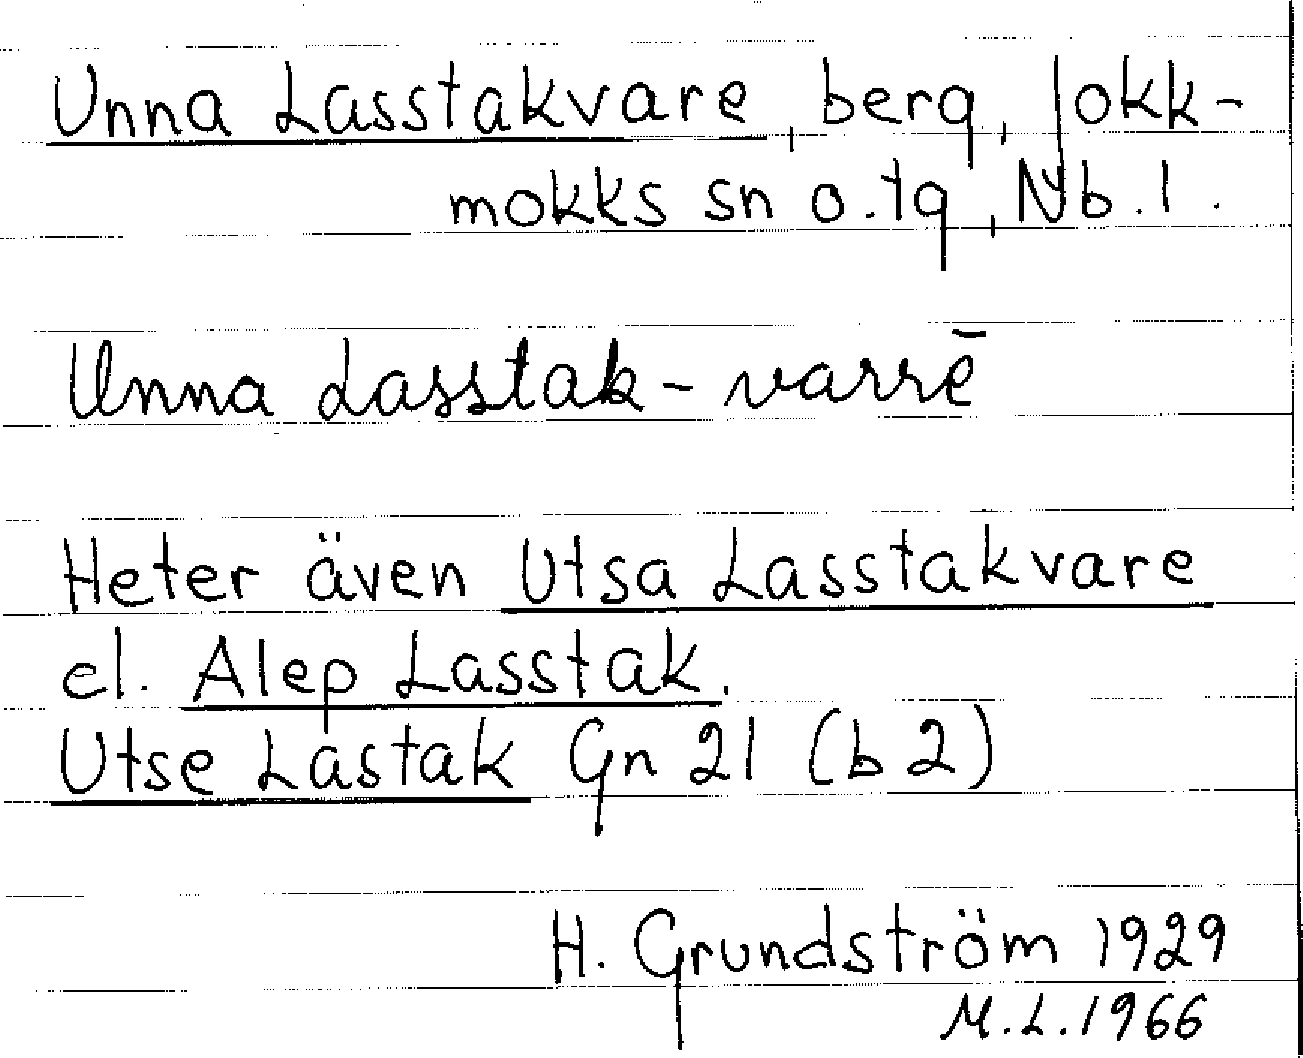 Unna Lasstakvare, berg, Jokk-
mokks sn o. tg, Nb. l.
Unna Lasstak-varrē
Heter även Utsa Lasstakvare
el. Alep Lasstak.
Utse Lastak Gn 21 (b 2)
H. Grundström 1929
M.L. 1966